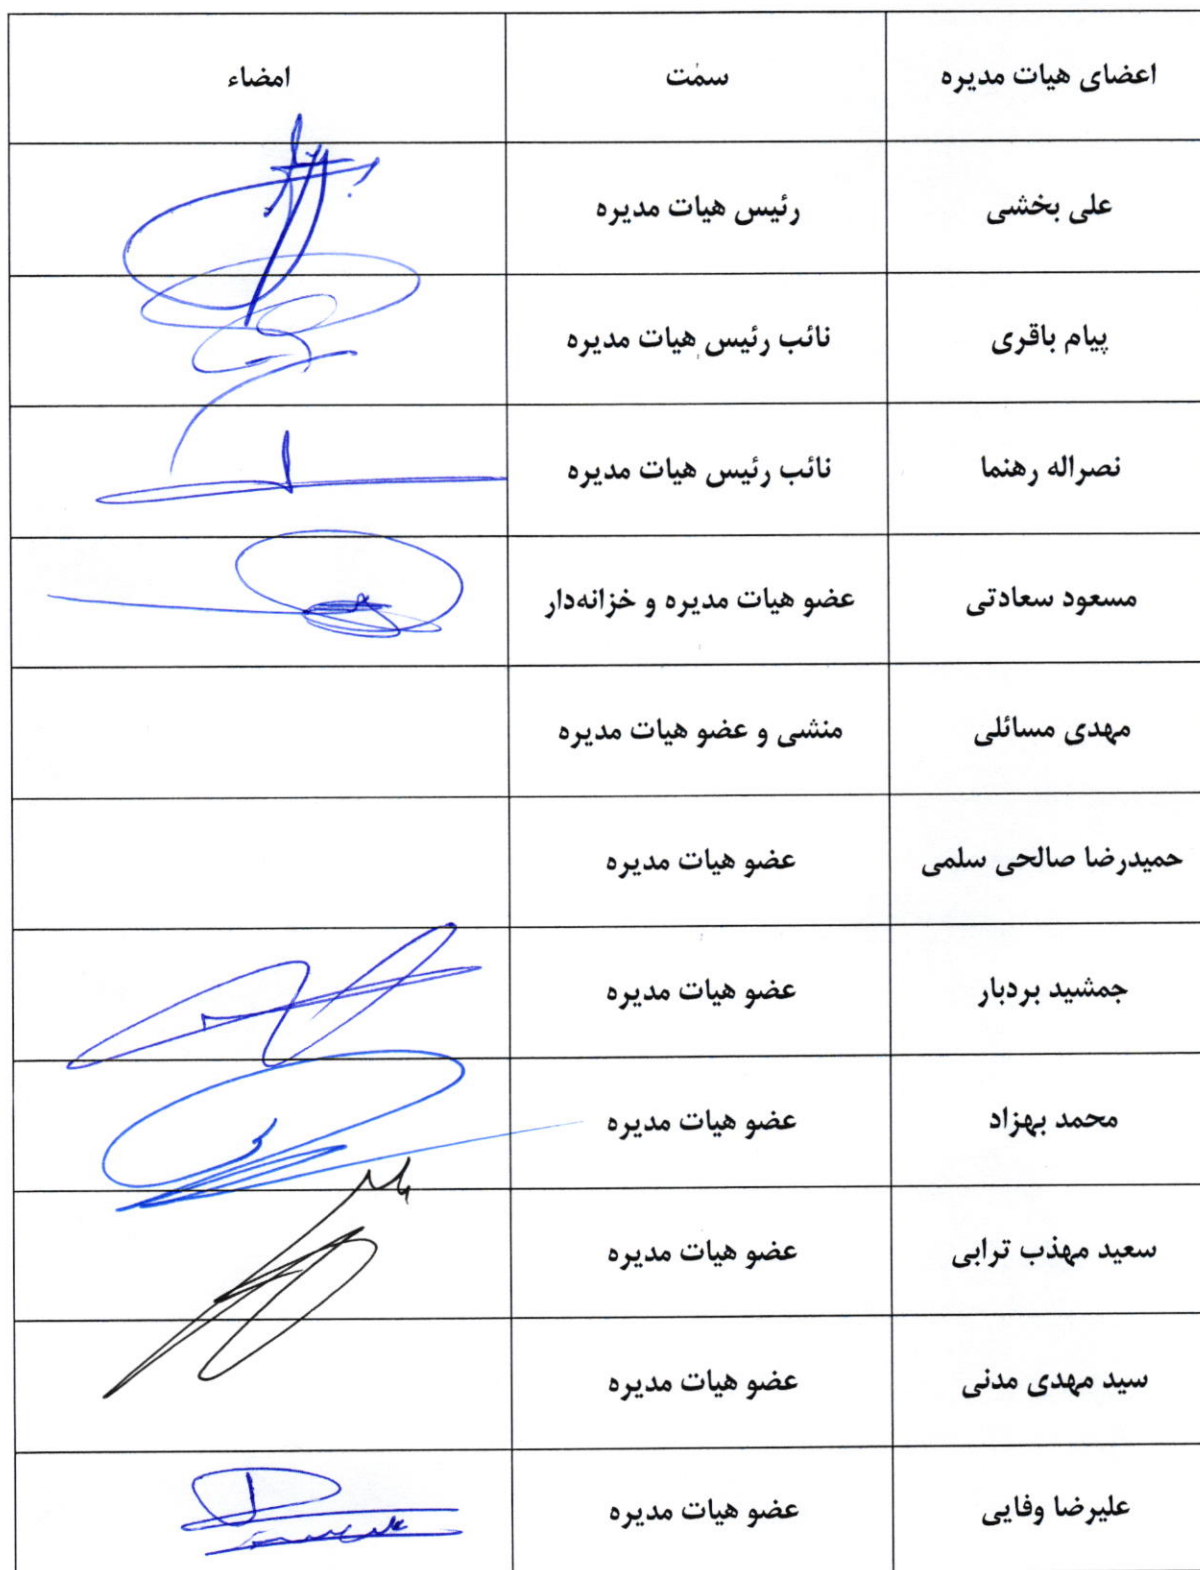 اعضای هیات مدیره سمت امضاء
علی بخشی رئیس هیات مدیره
پیام باقری نائب رئیس هیات مدیره
نصراله رهنما نائب رئیس هیات مدیره
مسعود سعادتی عضو هیات مدیره و خزانه‌دار
مهدی مسائلی منشی و عضو هیات مدیره
حمیدرضا صالحی سلمی عضو هیات مدیره
جمشید بردبار عضو هیات مدیره
محمد بهزاد عضو هیات مدیره
سعید مهذب ترابی عضو هیات مدیره
سید مهدی مدنی عضو هیات مدیره
علیرضا وفایی عضو هیات مدیره